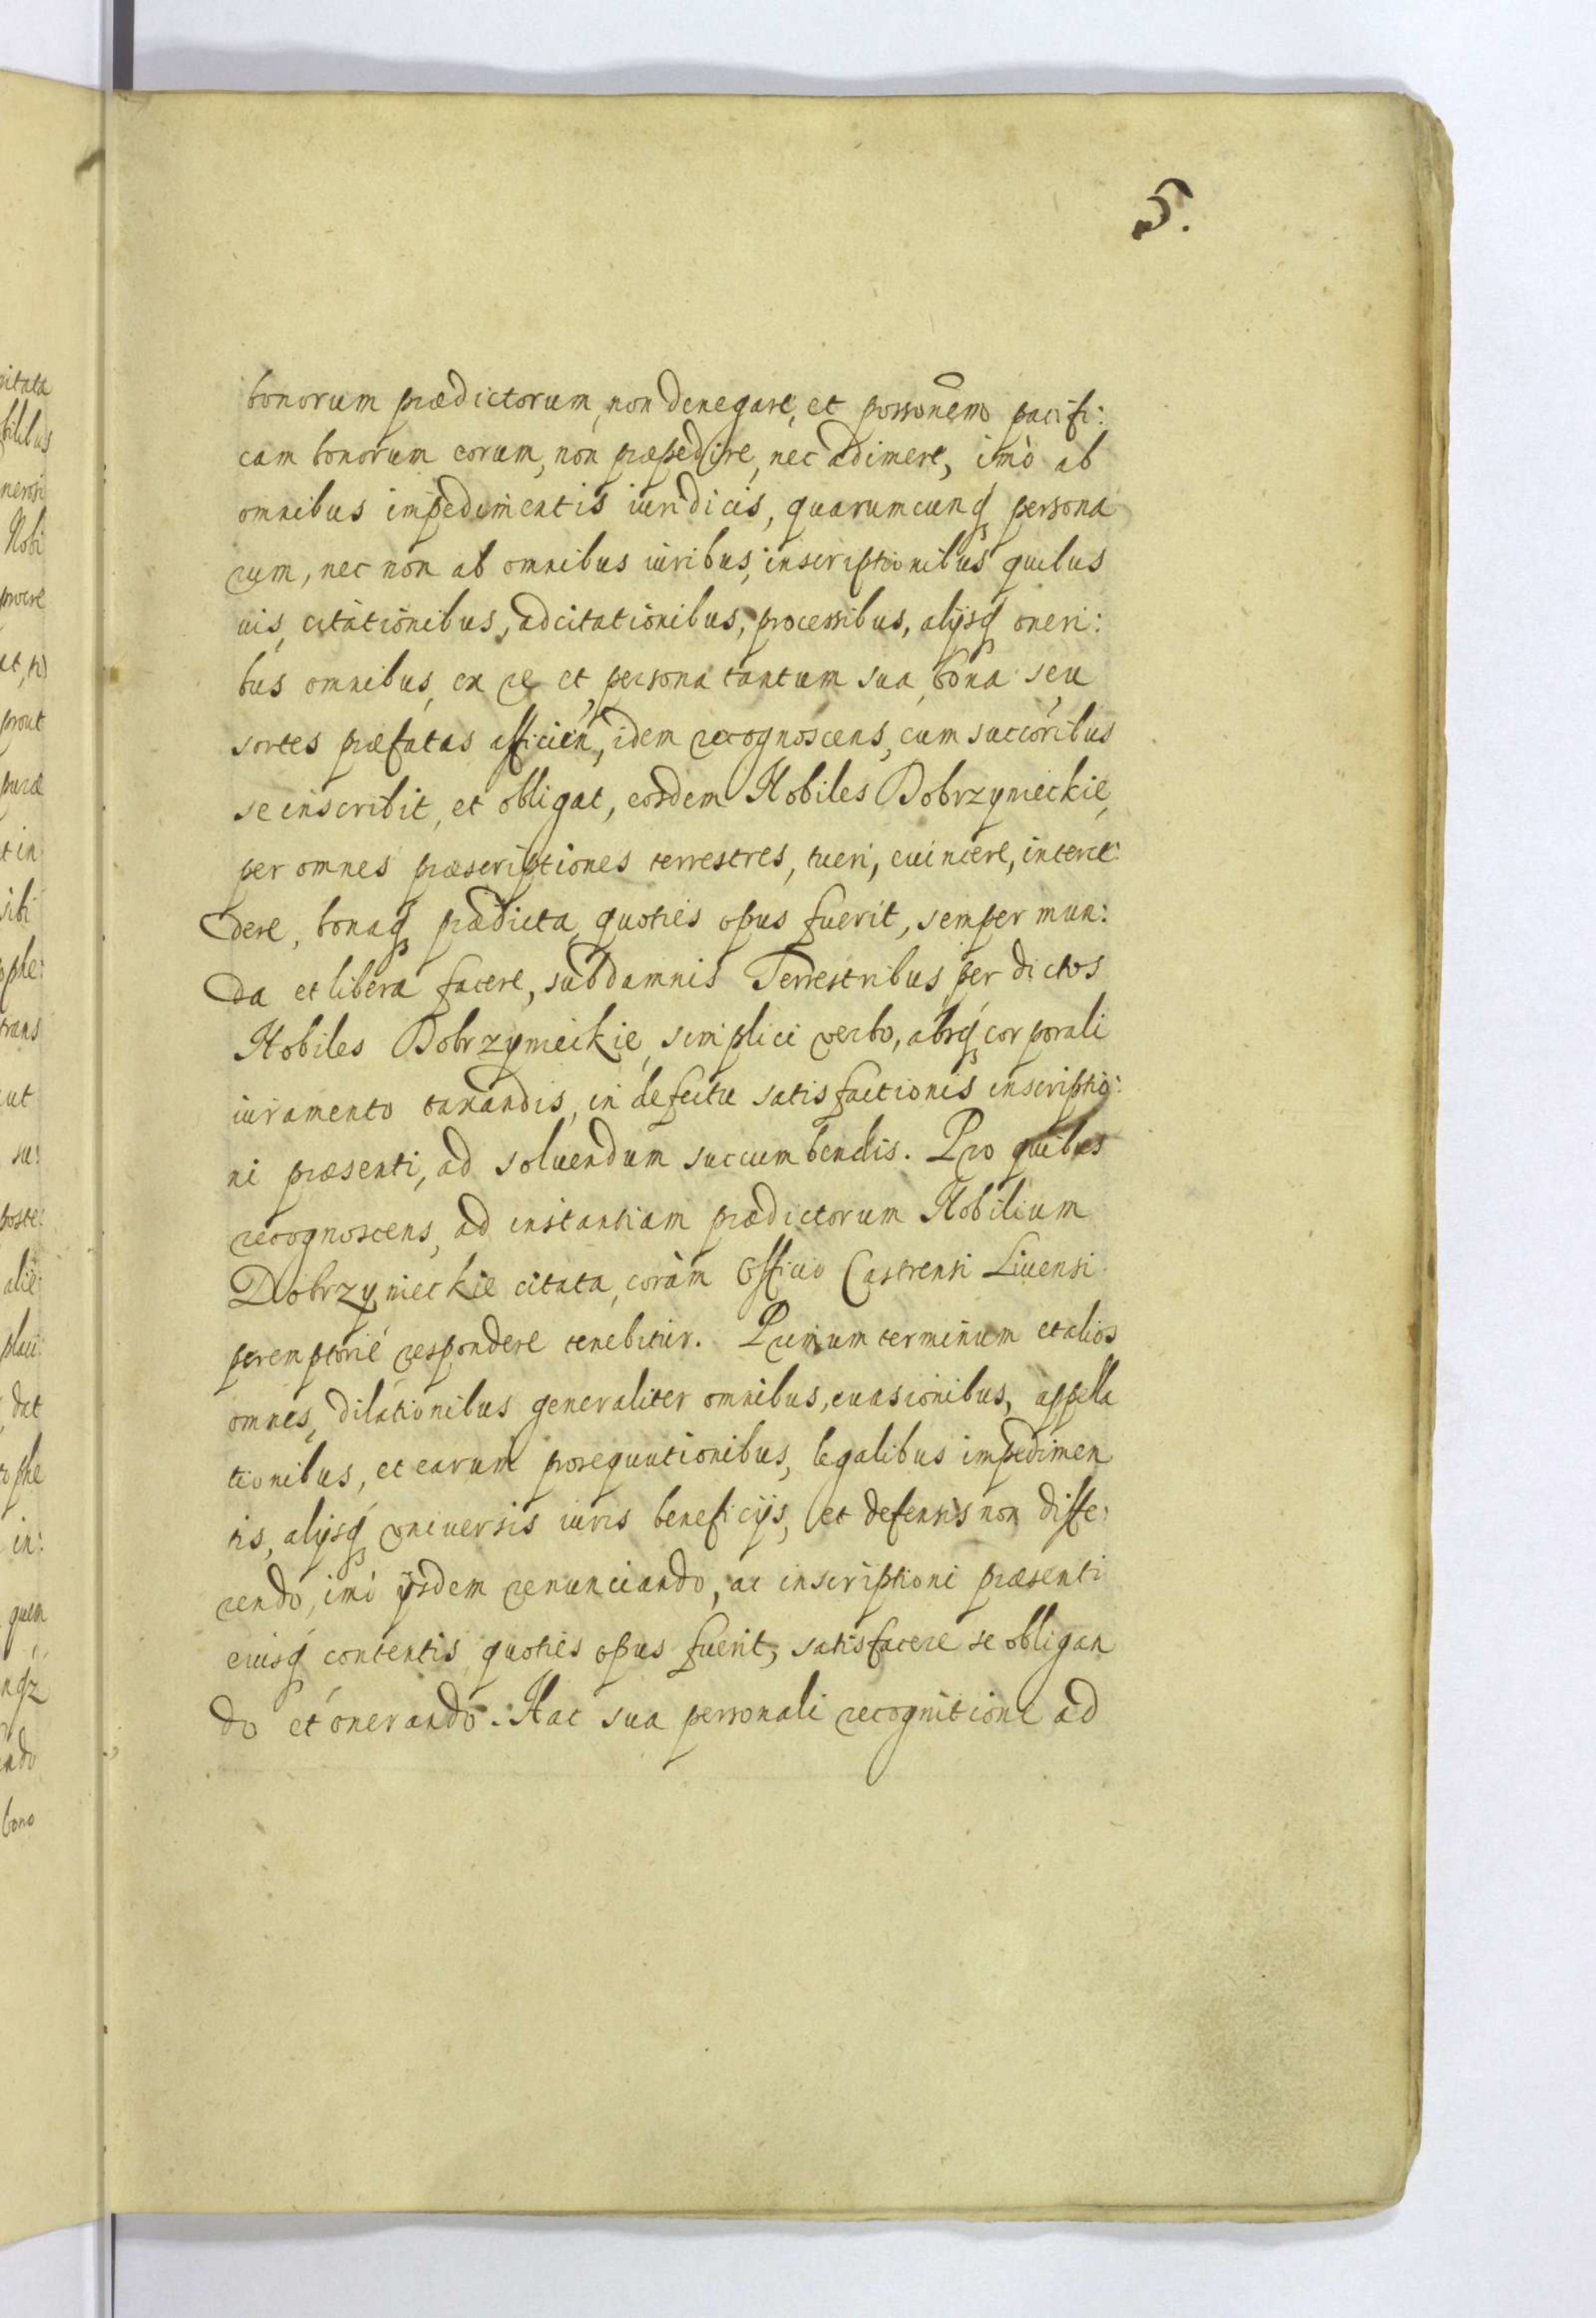 5.
bonorum prædictorum, non denegare, et possonem pacifi:
cam bonorum eorum, non præpedire, nec adimere, imò ab
omnibus impedimentis iuridicis, quarumcunq persona
rum, nec non ab omnibus iuribus, inscriptionibus quibus
uis, citationibus, adcitationibus, processibus, alijsq oneri:
bus omnibus, ex re et persona tantum sua, bona seu
sortes præfatas afficien, idem recognoscens, cum succoribus
se inscribit, et obligat, eosdem Nobiles Dobrzynieckie,
per omnes præscriptiones terrestres, tueri, euincere, interce:
dere, bonaq prædicta, quoties opus fuerit, semper mun:
da et libera facere, sub damnis Terrestribus per dictos
Nobiles Dobrzynieckie, simplici verbo, absq corporali
iuramento taxandis, in defectu satisfactionis inscriptio:
ni præsenti, ad soluendum succumbendis. Pro quibus
recognoscens, ad instantiam prædictorum Nobilium
Dobrzynieckie citata, coràm Officio Castrensi Liuensi
peremptorié respondere tenebitur. Primum terminum et alios
omnes, dilationibus generaliter omnibus, euasionibus, appella
tionibus, et earum prosequutionibus, legalibus impedimen
tis, alijsq vniuersis iuris beneficijs, et defensis non diffe:
rendo, imò ijsdem renunciando, ac inscriptioni præsenti
eiusq contentis, quoties opus fuerit, satisfacere se obligan
do et onerando. Hac sua personali recognitione ad